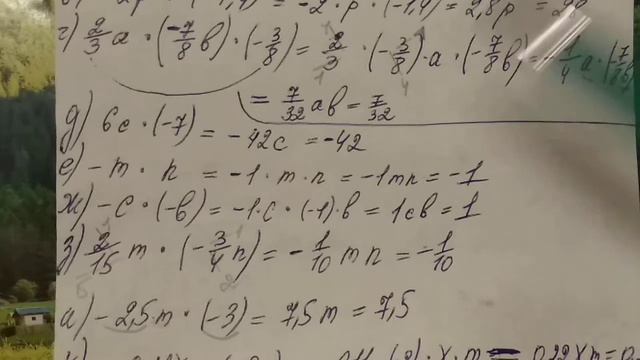 · (-1,4) = -2 · p · (-1,4) = 2,8p =
г) 2/3 a · (-7/8 b) · (-3/8) = 2/3 · (-3/8) · a · (-7/8 b) = -1/4 a · (-7/8 b)
= 7/32 ab = 7/32
д) 6c · (-7) = -42c = -42
е) -m · n = -1 · m · n = -1mn = -1
ж) -c · (-b) = -1 · c · (-1) · b = 1cb = 1
з) 2/15 m · (-3/4 n) = -1/10 mn = -1/10
и) -2,5m · (-3) = 7,5m = 7,5